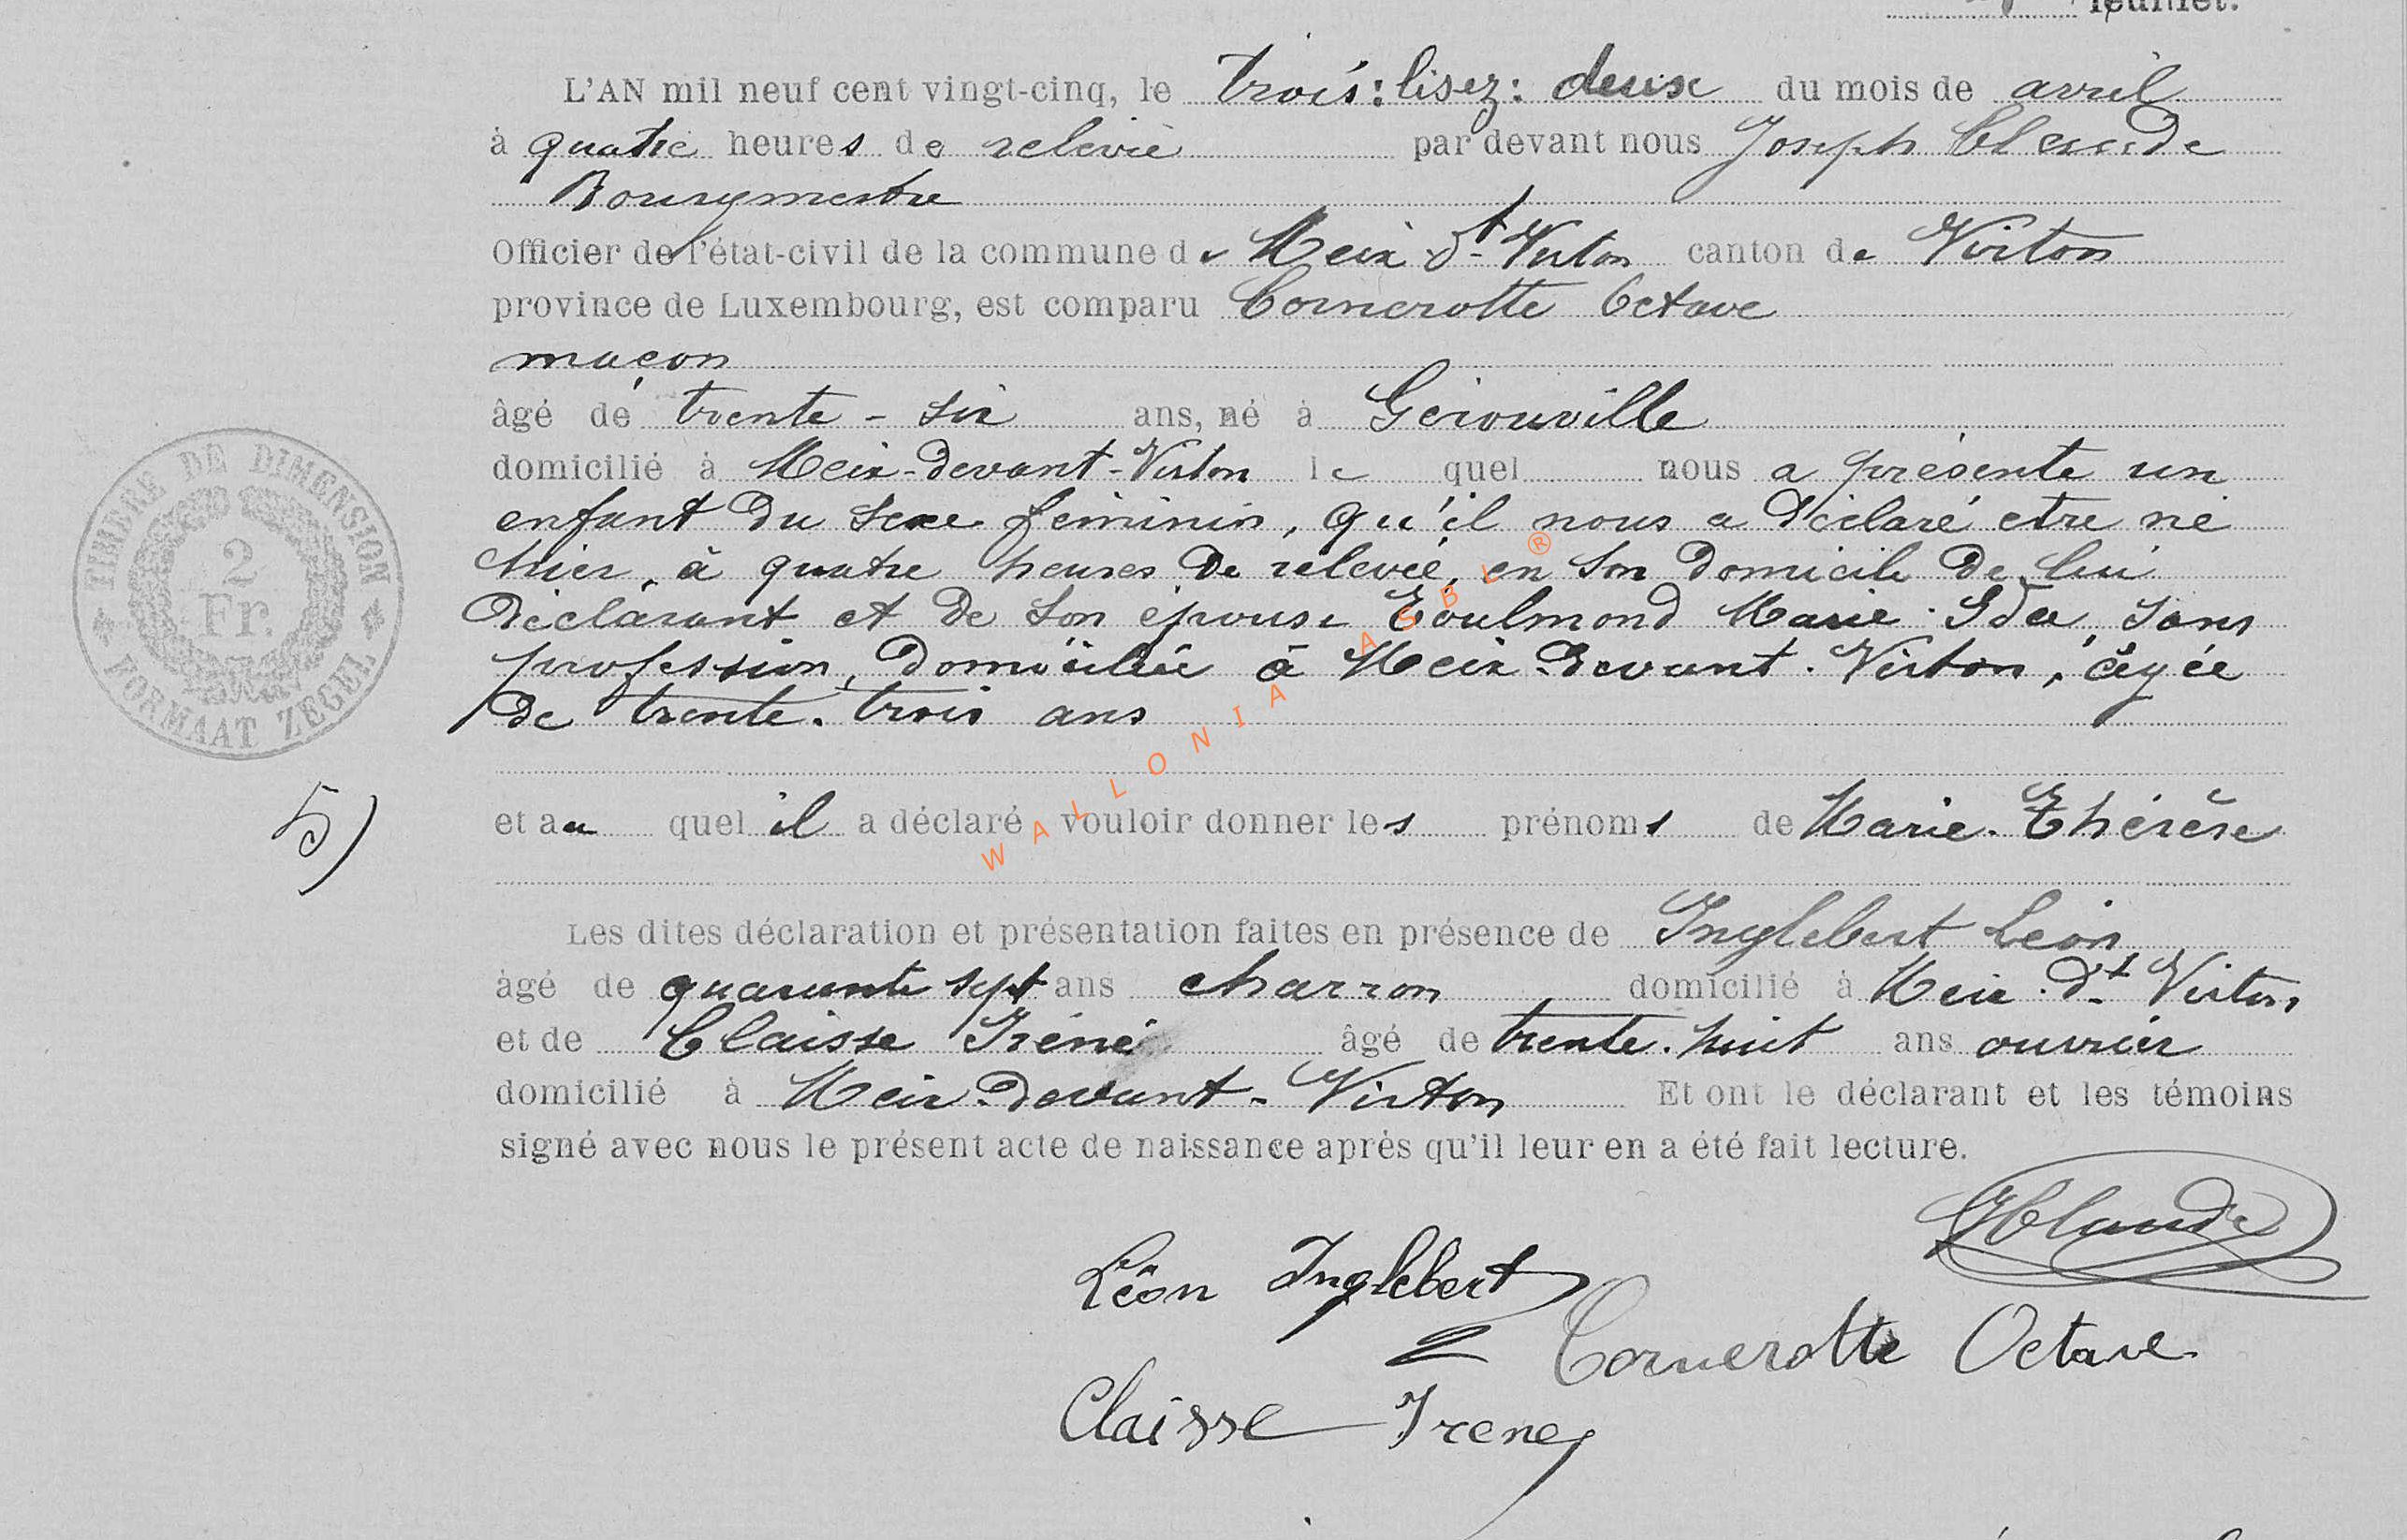 feuillet.
L'AN mil neuf cent vingt-cinq, le trois : lisez : deux du mois de avril
à quatre heures de relevée par devant nous Joseph Claude
Bourgmestre
Officier de l'état-civil de la commune de Meix dt Virton canton de Virton
province de Luxembourg, est comparu Cornerotte Octave
maçon
âgé de trente-six ans, né à Gérouville
domicilié à Meix-devant-Virton le quel nous a présenté un
enfant du sexe féminin, qu'il nous a déclaré etre né
hier, à quatre heures de relevée, en son domicile de lui
déclarant et de son épouse Toulmond Marie-Ida, sans
profession, domiciliée à Meix-devant-Virton, âgée
de trente-trois ans
et au quel il a déclaré vouloir donner les prénoms de Marie-Thérèse
Les dites déclaration et présentation faites en présence de Inglebert Léon
âgé de quarante sept ans charron domicilié à Meix-dt Virton
et de Claisse Iréné âgé de trente-huit ans ouvrier
domicilié à Meix-devant-Virton Et ont le déclarant et les témoins
signé avec nous le présent acte de naissance après qu'il leur en a été fait lecture.
TIMBRE DE DIMENSION
2
Fr.
FORMAAT ZEGEL
5)
WALLONIA ASBL ®
JClaude
Léon Inglebert
Cornerotte Octave
Claisse Irené